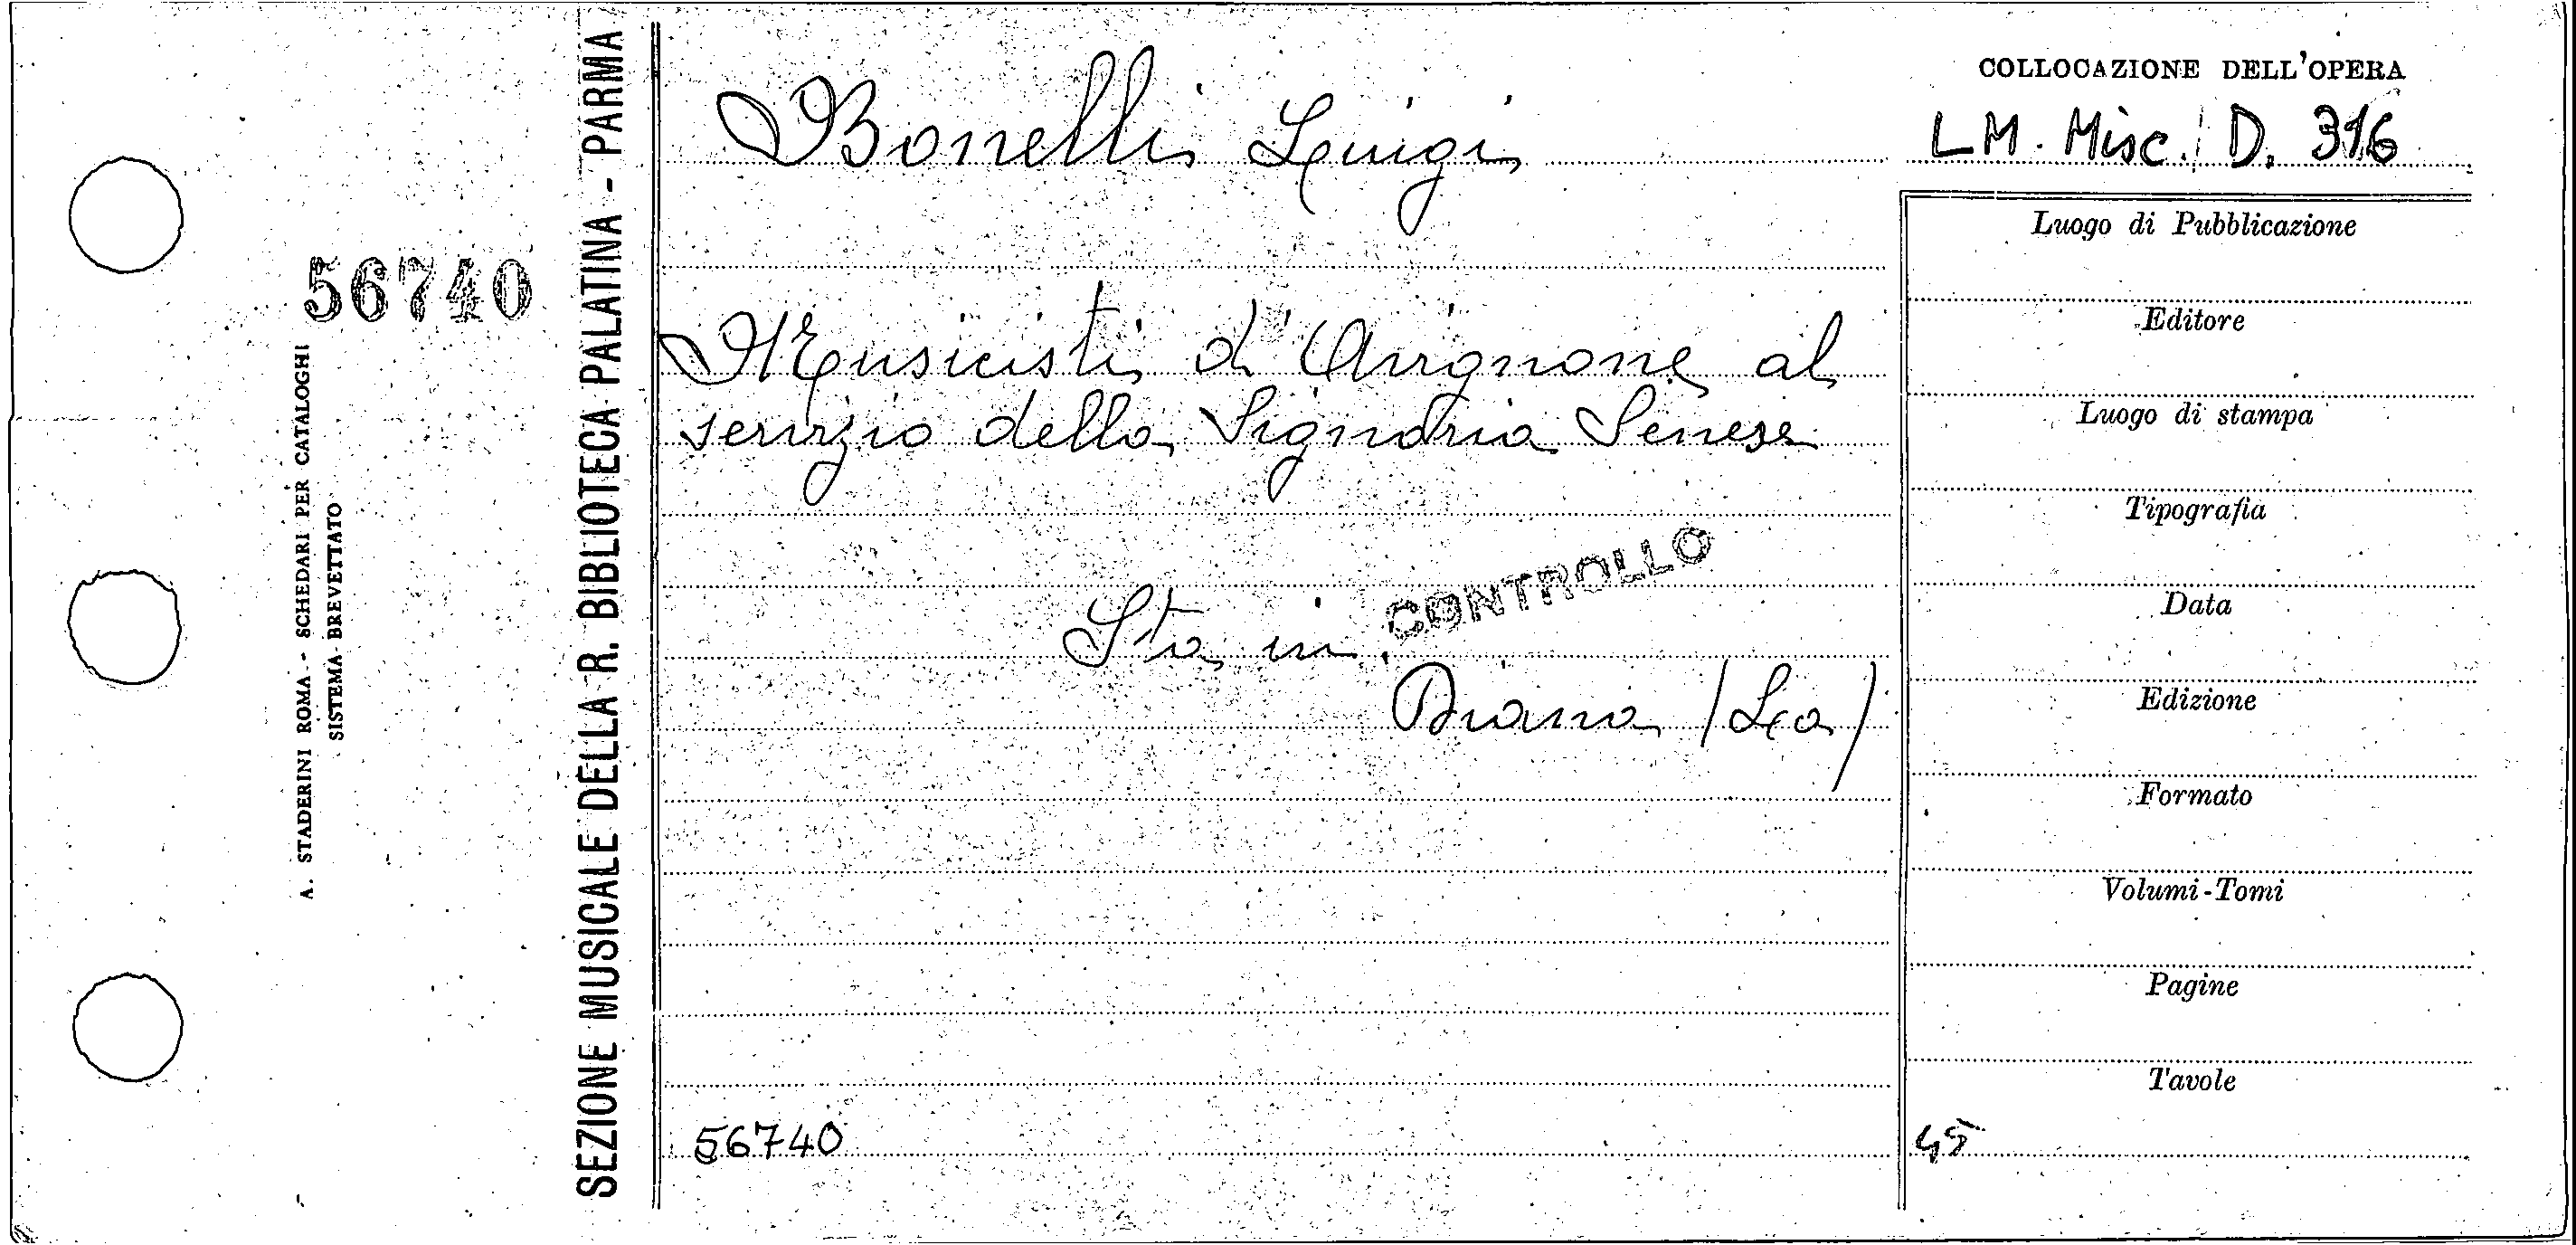 COLLOCAZIONE DELL'OPERA
Bonelli Luigi
LM. Misc. D. 316
56740
Musicisti d'Avignone al
servizio della Signoria Senese
CONTROLLO
Sta in
Diana (La)
56740
Luogo di Pubblicazione
Editore
Luogo di stampa
Tipografia
Data
Edizione
Formato
Volumi-Tomi
Pagine
Tavole
45
SEZIONE MUSICALE DELLA R. BIBLIOTECA PALATINA - PARMA
A. STADERINI ROMA - SCHEDARI PER CATALOGHI
SISTEMA BREVETTATO